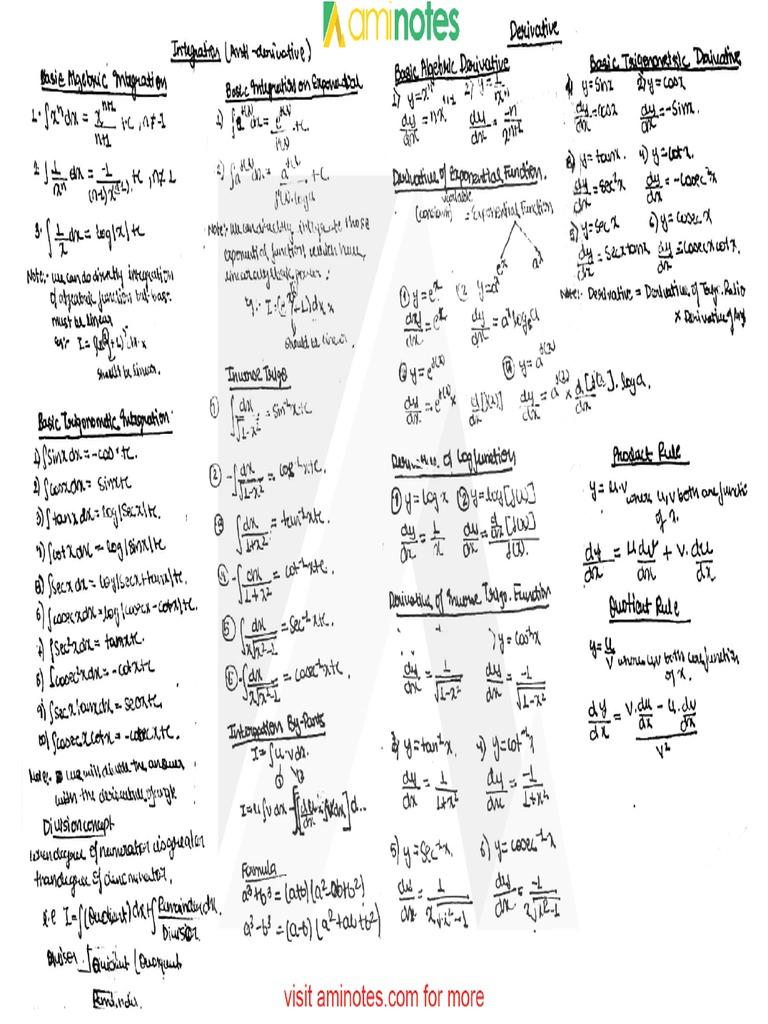 aminotes
Integration (Anti-derivative)
Basic Algebric Integration
1. ∫xⁿdx = xⁿ⁺¹/n+1 +c, n≠-1
2. ∫1/xⁿ dx = -1/(n-1)xⁿ⁻¹ +c, n≠1
3. ∫1/x dx = log|x|+c
Note:- we can do directly integration
of algebric function but base
must be linear
should be linear.
Basic Trigonometric Integration
1) ∫Sinx dx = -cosx+c.
2) ∫cosx dx = Sinx+c
3) ∫tanx dx = log|Secx|+c
4) ∫cotx dx = log|sinx|+c
5) ∫secx dx = log|secx+tanx|+c
6) ∫cosecx dx = log|cosecx-cotx|+c
7) ∫Sec²x dx = tanx+c.
8) ∫cosec²x dx = -cotx+c
9) ∫secx tanx dx = secx+c.
10) ∫cosecx cotx = -cosecx+c.
Note:- we will divide the answer
with the derivative of angle
Division concept
when degree of numerator is greater
than degree of denominator.
i.e I = ∫(Quotient)dx + ∫Remainder/Divisor dx.
Basic Integration on Exponential
1) ∫e^f(x) dx = e^f(x)/f'(x) +c.
2) ∫a^f(x) dx = a^f(x)/f'(x).log a +c
Note:- we can directly integrate those
exponential function which have
linear algebric power.
should be linear.
Inverse Trigo
① ∫dx/√1-x² = sin⁻¹x+c
② -∫dx/√1-x² = cos⁻¹x+c.
③ ∫dx/1+x² = tan⁻¹x+c
④ -∫dx/1+x² = cot⁻¹x+c.
⑤ ∫dx/x√x²-1 = Sec⁻¹x+c.
⑥ -∫dx/x√x²-1 = cosec⁻¹x+c.
Intergation By-Parts
I = ∫u.v dx.
Formula
a³+b³ = (a+b)(a²-ab+b²)
a³-b³ = (a-b)(a²+ab+b²)
Derivative
Basic Algebric Derivative
1) y=xⁿ 2) y=1/xⁿ
dy/dx = nxⁿ⁻¹ dy/dx = -n/xⁿ⁺¹
Derivative of Exponential Function.
variable
(constant) = Exponential Function
eˣ aˣ
① y=eˣ ② y=aˣ
dy/dx = eˣ dy/dx = aˣ log a
③ y=e^f(x) ④ y=a^f(x)
dy/dx = e^f(x) x d/dx[f(x)] dy/dx = a^f(x) x d/dx[f(x)]. log a.
Derivative of Log function
① y=log x ② y=log[f(x)]
dy/dx = 1/x dy/dx = d/dx[f(x)]/f(x).
Derivative of Inverse Trigo. Function
y=cos⁻¹x
dy/dx = 1/√1-x² dy/dx = -1/√1-x²
3) y=tan⁻¹x. 4) y=cot⁻¹x.
dy/dx = 1/1+x² dy/dx = -1/1+x²
5) y=Sec⁻¹x. 6) y=cosec⁻¹x.
dy/dx = 1/x√x²-1 dy/dx = -1/x√x²-1
Basic Trigonometric Derivative
1) y=sinx 2) y=cosx
dy/dx = cosx dy/dx = -Sinx.
3) y=tanx. 4) y=cotx.
dy/dx = Sec²x dy/dx = -cosec²x
5) y=secx 6) y=cosecx
dy/dx = Secx tanx dy/dx = -cosecx cotx.
Note:- Derivative = Derivative of Trigo. Ratio
x Derivative of Ang
Product Rule
y = u.v where u,v both are functic
of x.
dy/dx = u dv/dx + v. du/dx
Quotient Rule
y = u/v where u,v both are function
of x.
dy/dx = v.du/dx - u.dv/dx / v²
visit aminotes.com for more